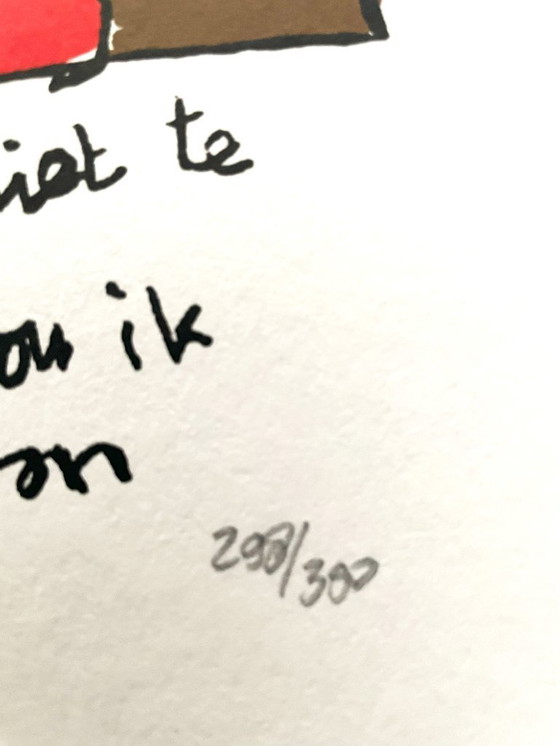 iet te
ou ik
an
298/300